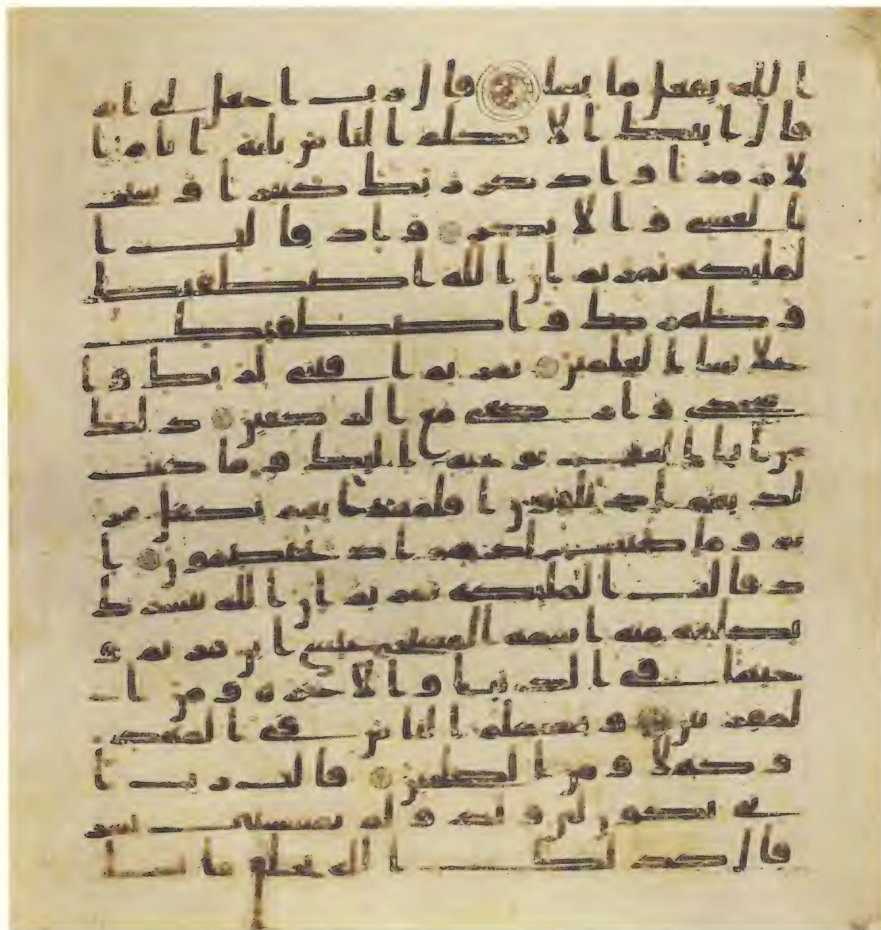 الله يفعل ما يشا قال رب اجعل لي ايه
قال ايتك الا تكلم الناس ثلثه ايام ا
لا رمزا واذكر ربك كثيرا وسبح
بالعشي والابكر واذ قالت ا
لمليكه يمريم ان الله اصطفيك
وطهرك واصطفيك
علا نسا العلمين يمريم اقنتي لربك وا
سجدي واركعي مع الركعين ذلك
من انبا الغيب نوحيه اليك وما كنت
لديهم اذ يلقون اقلمهم ايهم يكفل مر
يم وما كنت لديهم اذ يختصمون ا
ذ قالت المليكه يمريم ان الله يبشرك
بكلمه منه اسمه المسيح عيسى ابن مريم و
جيها في الدنيا والاخره ومن ا
لمقربين ويكلم الناس في المهد
وكهلا ومن الصلحين قالت رب ا
نى يكون لي ولد ولم يمسسني بشر
قال كذلك الله يخلق ما يشا